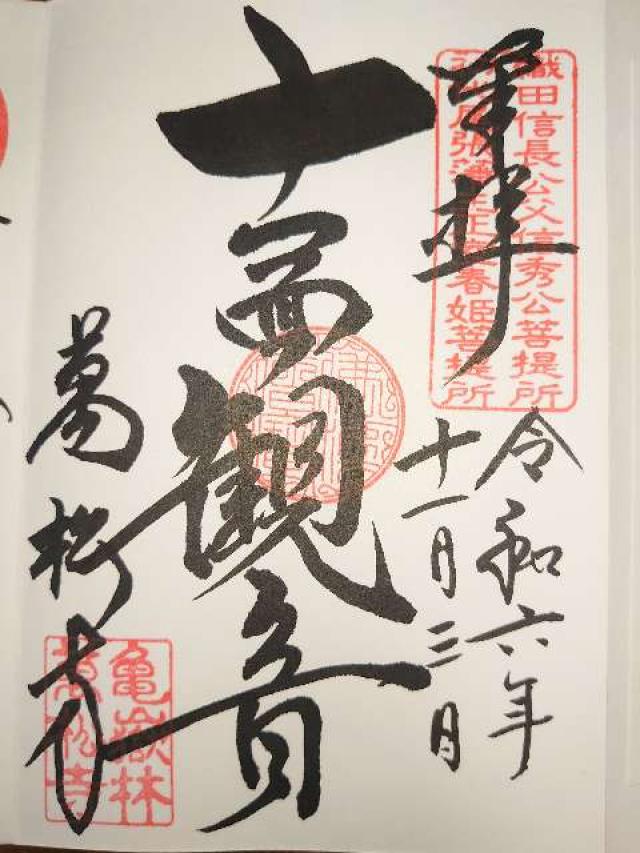 奉拝
織田信長公父信秀公菩提所
初代尾張藩主正室春姫菩提所
令和六年
十一月三日
十一面観音
萬松寺
亀嶽林
萬松寺